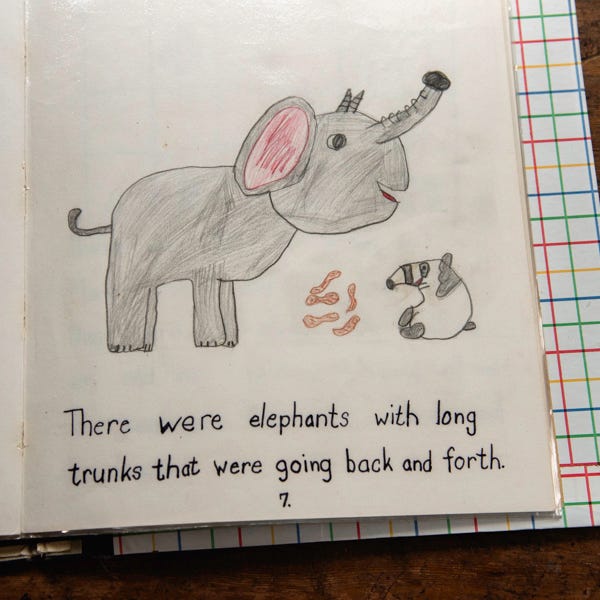 There were elephants with long
trunks that were going back and forth.
7.